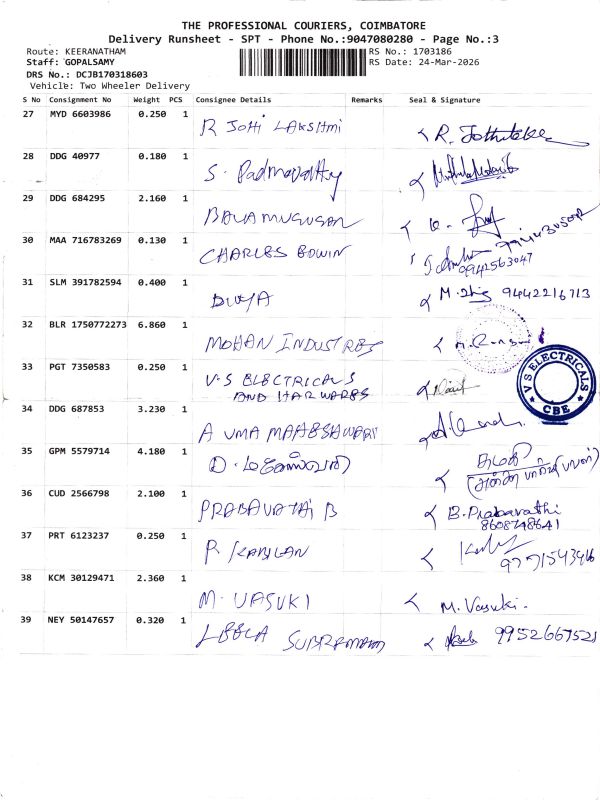 THE PROFESSIONAL COURIERS, COIMBATORE
Delivery Runsheet - SPT - Phone No.:9047080280 - Page No.:3
Route: KEERANATHAM RS No.: 1703186
Staff: GOPALSAMY RS Date: 24-Mar-2026
DRS No.: DCJB170318603
Vehicle: Two Wheeler Delivery
S No Consignment No Weight PCS Consignee Details Remarks Seal & Signature
27 MYD 6603986 0.250 1 R JOTHI LAKSHMI R.
28 DDG 40977 0.180 1 S. Padmavathy
29 DDG 684295 2.160 1 BALAMURUGAN
30 MAA 716783269 0.130 1 CHARLES EDWIN
9942563047
31 SLM 391782594 0.400 1 DIVYA 9442216713
32 BLR 1750772273 6.860 1 MOHAN INDUSTRES
33 PGT 7350583 0.250 1 V.S ELECTRICALS
AND HARWARES
V S ELECTRICALS
CBE
34 DDG 687853 3.230 1 A UMA MAHESHWARI
35 GPM 5579714 4.180 1
36 CUD 2566798 2.100 1 PRABAVATHI B B.Prabavathi
8608748641
37 PRT 6123237 0.250 1 P KABILAN
38 KCM 30129471 2.360 1 M. VASUKI M. Vasuki.
39 NEY 50147657 0.320 1 LEELA SUBRAMANI 9952667521